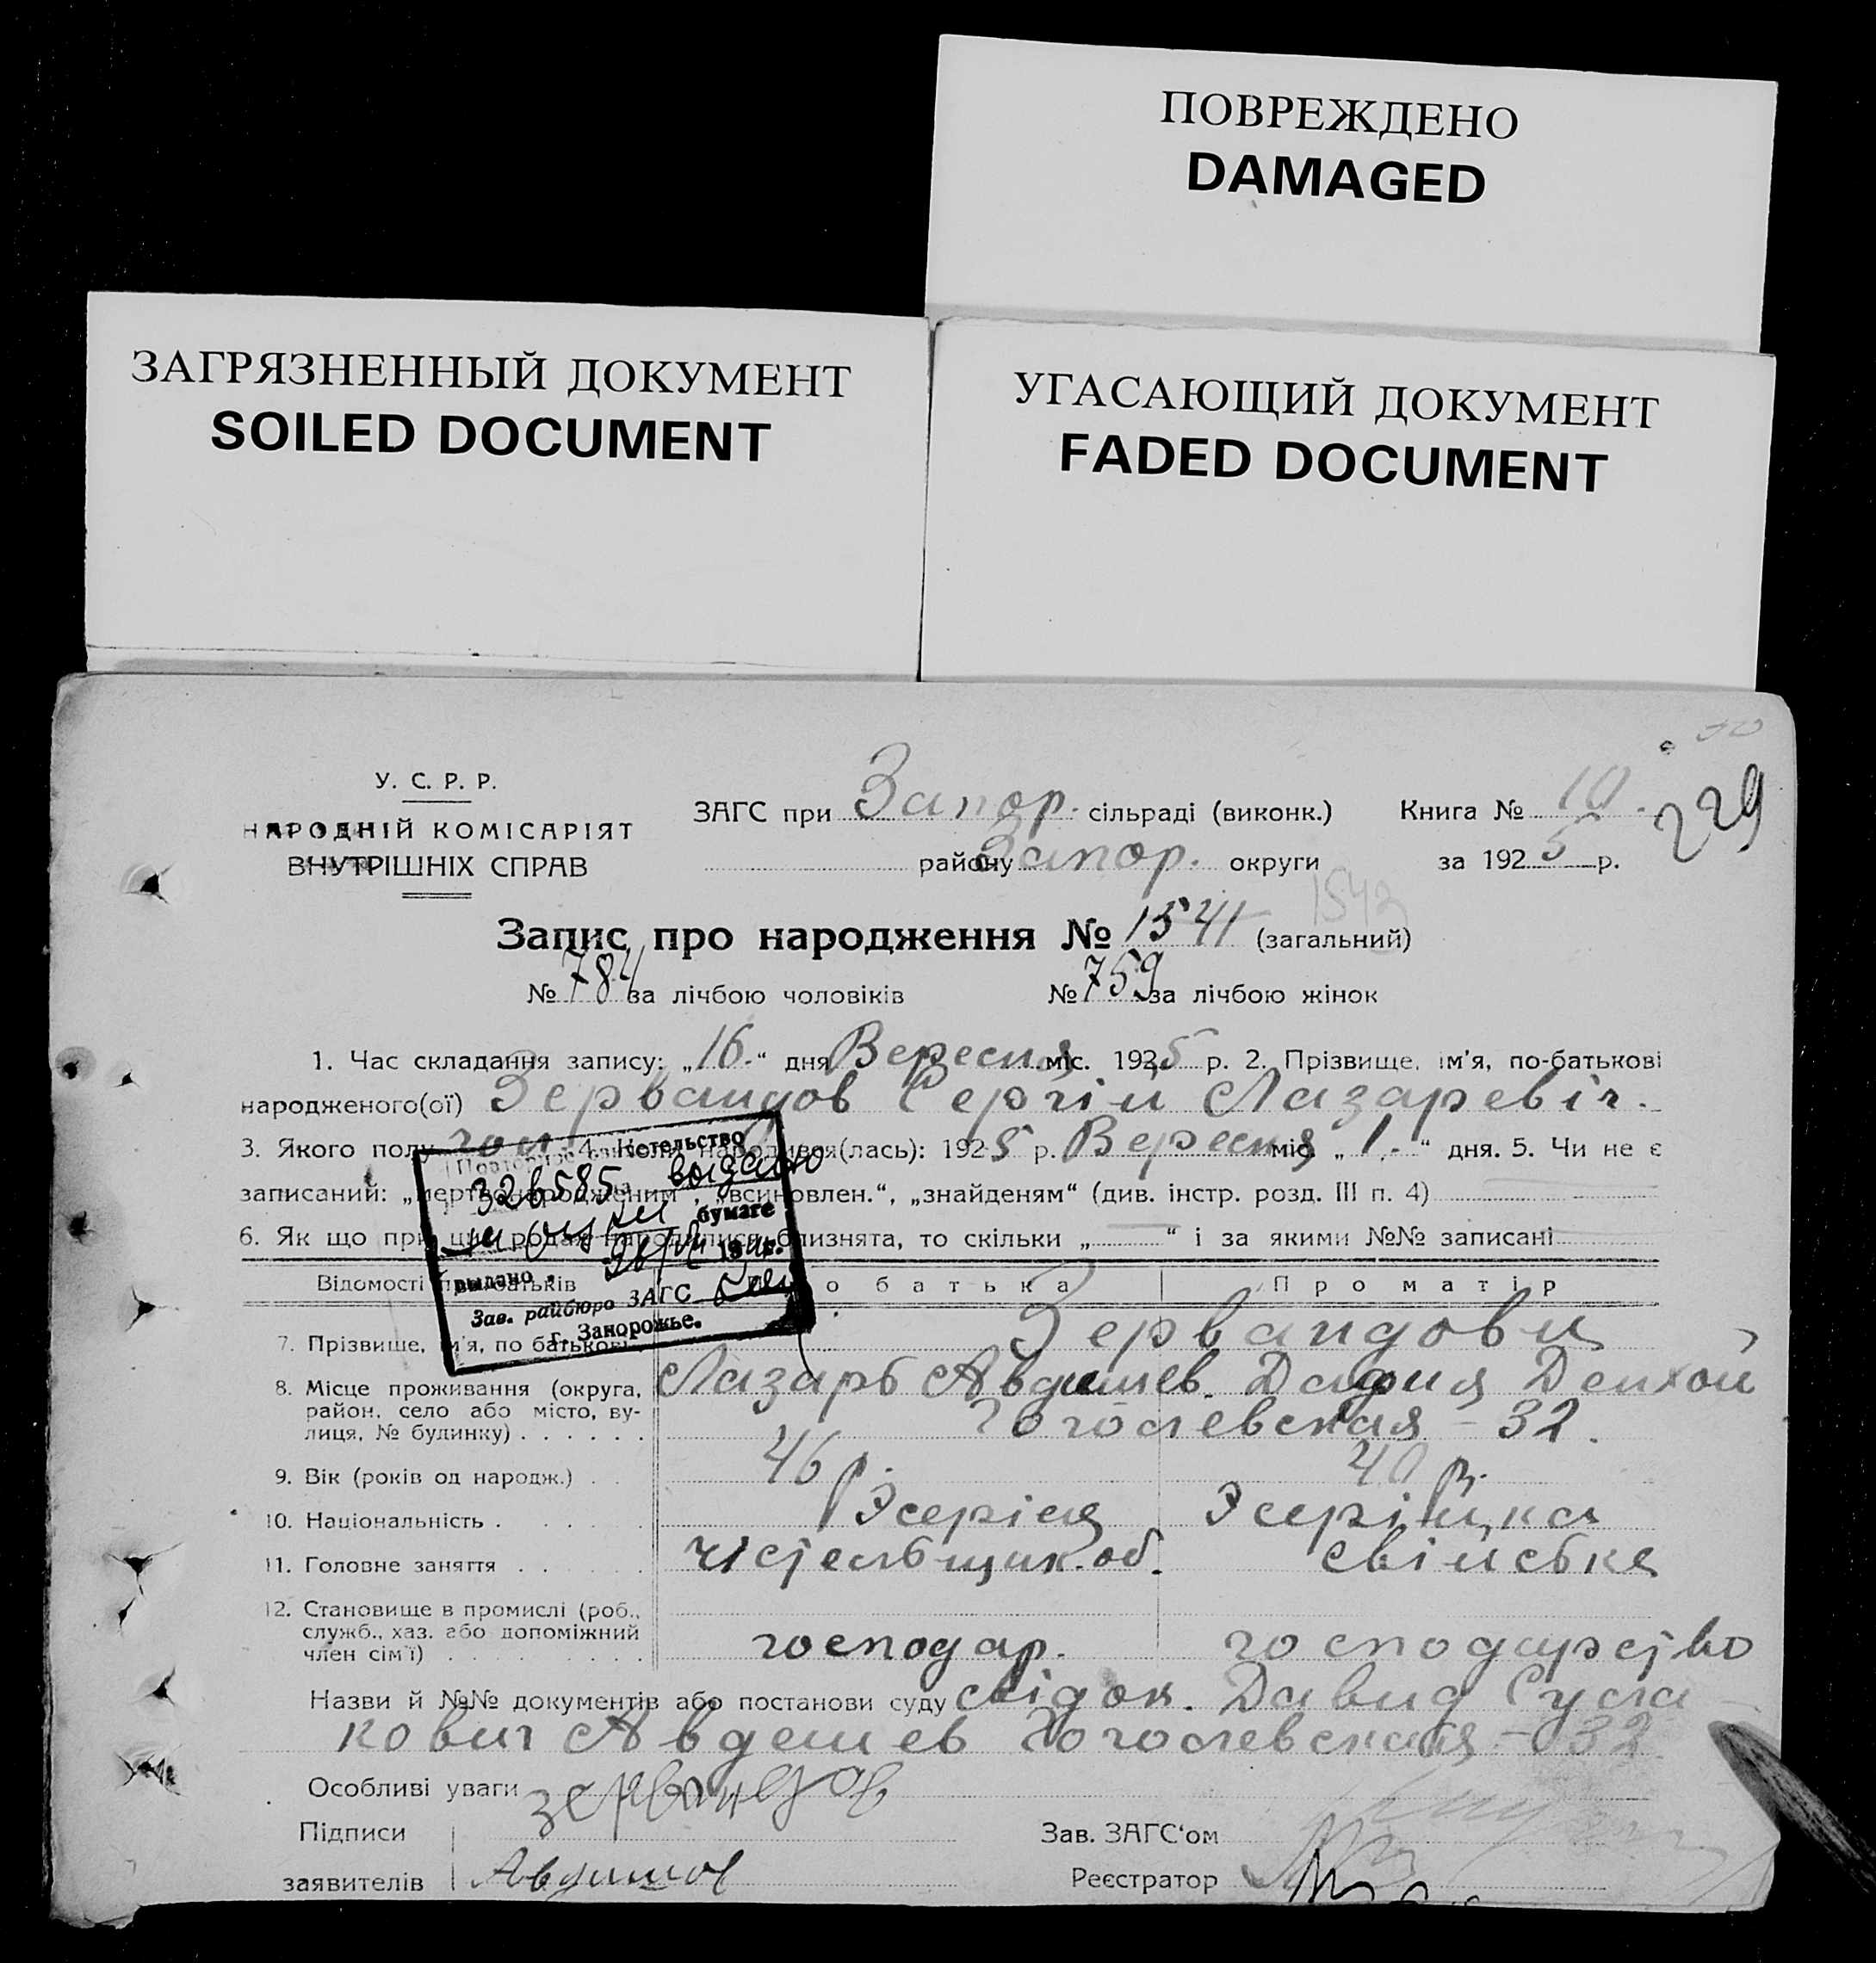 ПОВРЕЖДЕНО
DAMAGED
ЗАГРЯЗНЕННЫЙ ДОКУМЕНТ
SOILED DOCUMENT
УГАСАЮЩИЙ ДОКУМЕНТ
FADED DOCUMENT
У. С. Р. Р.
НАРОДНІЙ КОМІСАРІЯТ
ВНУТРІШНІХ СПРАВ
ЗАГС при Запор. сільраді (виконк.)
району Запор. округи
Книга № 10.
за 1925 р.
229
1543
Запис про народження № 1541 (загальний)
№ 784 за лічбою чоловіків № 759 за лічбою жінок
1. Час складання запису: „16.“ дня Вересня міс. 1925 р. 2. Прізвище, ім'я, по-батькові
народженого(ої) Зервандов Сергій Лазаревіч.
3. Якого полу чол. 4. Коли народився(лась): 1925 р. Вересня міс. „1.“ дня. 5. Чи не є
записаний: „мертвонародженим“, „всиновлен.“, „знайденям“ (див. інстр. розд. III п. 4)
6. Як що при цих родах народилися близнята, то скільки „ “ і за якими №№ записані
Повторное свидетельство
326585 выдано
бумаге
выдано
19 г.
Зав. райбюро ЗАГС
г. Запорожье.
Відомості про батьків Про батька Про матір
7. Прізвище, ім'я, по батькові Зервандови
Лазарь Авдишев.
8. Місце проживання (округа, район, село або місто, вулиця, № будинку) Гоголевская - 32.
9. Вік (років од народж.) 46 р. 40 р.
10. Національність
11. Головне заняття об. свійське
12. Становище в промислі (роб., служб., хаз. або допоміжний член сім'ї) господар. господарство
Назви й №№ документів або постанови суду свідок. Давид
кович Авдешев Гоголевская - 32
Особливі уваги зервандов
Підписи
заявителів Авдишов
Зав. ЗАГС'ом
Реєстратор